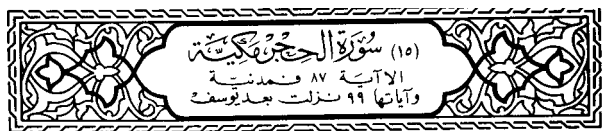 (١٥) سُورَةُ الْحِجْرِ مَكِّيَّة
الا آية ٨٧ فمدنية
وآياتها ٩٩ نزلت بعد يوسف